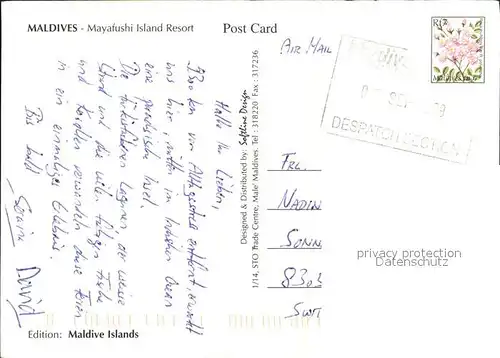 MALDIVES - Mayafushi Island Resort
Post Card
AIR MAIL
DESPATCH SECTION
Hallo Ihr Lieben,
8380 km von Alltagsstress entfernt, erwartet
uns hier, mitten im Indischen Ozean
eine paradiesische Insel.
Die türkisfarbenen Lagunen, der weisse
Strand und die vielen farbigen Fische
und Korallen verwandeln diese Ferien
in ein einmaliges Erlebnis.
Bis bald
David
Designed & Distributed by: Softline Design
1/14, STO Trade Centre, Male' Maldives. Tel : 318220 Fax : 317236
FRL.
NADIN
SONN
8303
privacy protection
Datenschutz
Edition: Maldive Islands